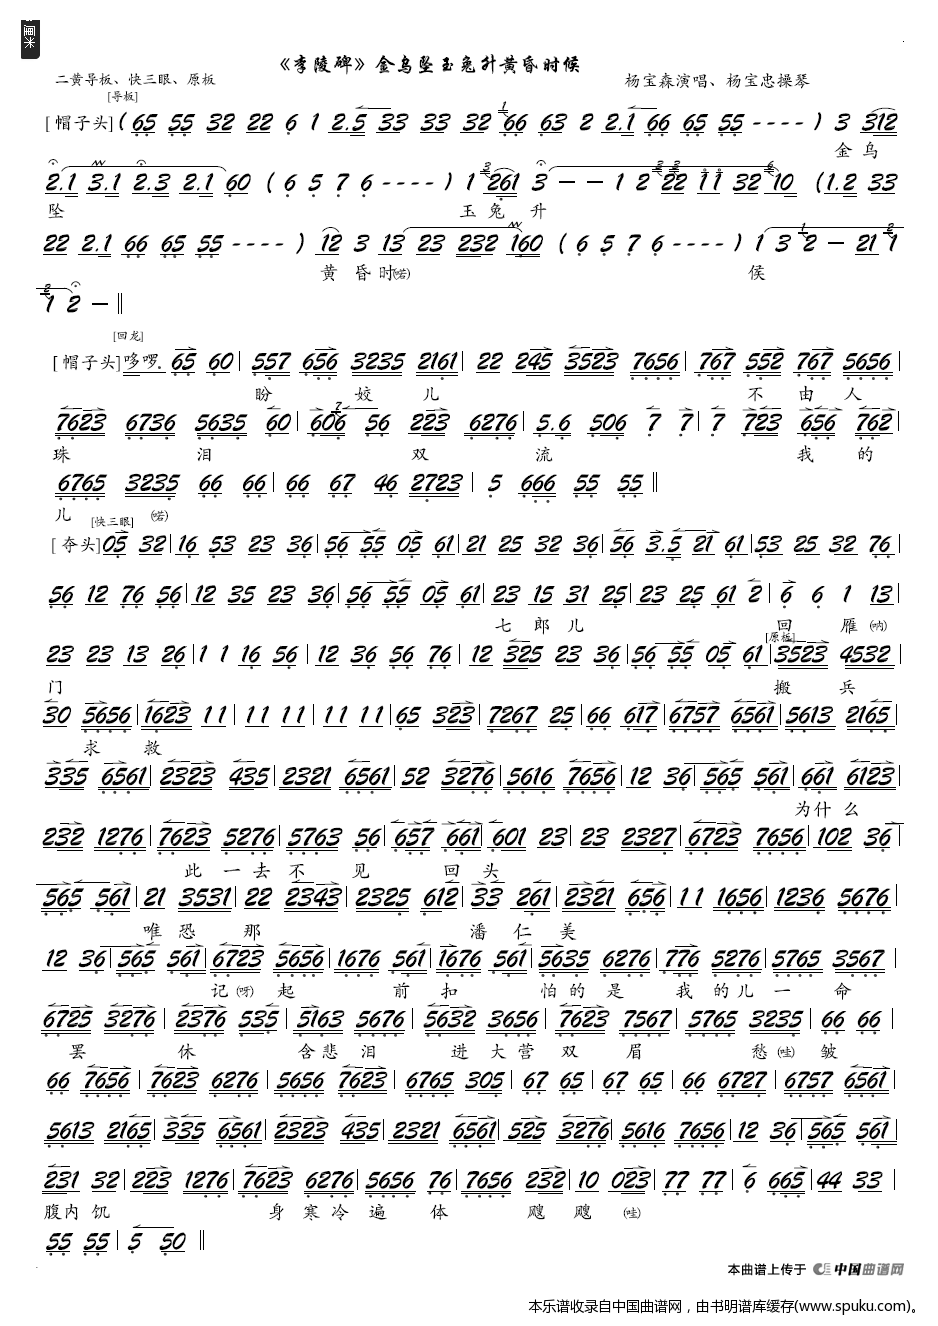 《李陵碑》金乌坠玉兔升黄昏时候
二黄导板、快三眼、原板
杨宝森演唱、杨宝忠操琴
[导板]
[帽子头]( 65 55 32 22 6 1 2.5 33 33 32 66 63 2 2.1 66 65 55 ---- ) 3 312
金 乌
2.1 3.1 2.3 2.1 60 ( 6 5 7 6 ---- ) 1 261 3 — — 1 2 22 11 32 10 (1.2 33
坠 玉 兔 升
22 2.1 66 65 55 ---- ) 12 3 13 23 232 160 ( 6 5 7 6 ---- ) 1 3 2 — 21 1
黄 昏 时(喏) 侯
1 2 — ‖
[回龙]
[帽子头]哆啰. 65 60 | 557 656 3235 2161 | 22 245 3523 7656 | 767 552 767 5656 |
盼 姣 儿 不 由 人
7623 6736 5635 60 | 606 56 223 6276 | 5.6 506 7 7 | 7 723 656 762 |
珠 泪 双 流 我 的
6765 3235 66 66 | 66 67 46 2723 | 5 666 55 55 ‖
儿 (喏)
[快三眼]
[夺头] 05 32 | 16 53 23 36 | 56 55 05 61 | 21 25 32 36 | 56 3.5 21 61 | 53 25 32 76 |
56 12 76 56 | 12 35 23 36 | 56 55 05 61 | 23 15 31 25 | 23 25 61 2 | 6 6 1 13 |
七 郎 儿 回 雁 (呐)
[原板]
23 23 13 26 | 1 1 16 56 | 12 36 56 76 | 12 325 23 36 | 56 55 05 61 | 3523 4532 |
门 搬 兵
30 5656 | 1623 11 | 11 11 | 11 11 | 65 323 | 7267 25 | 66 617 | 6757 6561 | 5613 2165 |
求 救
335 6561 | 2323 435 | 2321 6561 | 52 3276 | 5616 7656 | 12 36 | 565 561 | 661 6123 |
为什 么
232 1276 | 7623 5276 | 5763 56 | 657 661 | 601 23 | 23 2327 | 6723 7656 | 102 36 |
此 一 去 不 见 回 头
565 561 | 21 3531 | 22 2343 | 2325 612 | 33 261 | 2321 656 | 11 1656 | 1236 5676 |
唯 恐 那 潘 仁 美
12 36 | 565 561 | 6723 5656 | 1676 561 | 1676 561 | 5635 6276 | 776 5276 | 5765 3567 |
记 (呀) 起 前 扣 怕 的 是 我 的 儿 一 命
6725 3276 | 2376 535 | 5163 5676 | 5632 3656 | 7623 7567 | 5765 3235 | 66 66 |
罢 休 含 悲 泪 进 大 营 双 眉 愁 (哇) 皱
66 7656 | 7623 6276 | 5656 7623 | 6765 305 | 67 65 | 67 65 | 66 6727 | 6757 6561 |
5613 2165 | 335 6561 | 2323 435 | 2321 6561 | 525 3276 | 5616 7656 | 12 36 | 565 561 |
231 32 | 223 1276 | 7623 6276 | 5656 76 | 7656 232 | 10 023 | 77 77 | 6 665 | 44 33 |
腹内 饥 身 寒 冷 遍 体 飕 飕 (哇)
55 55 | 5 50 ‖
本曲谱上传于 中国曲谱网
本乐谱收录自中国曲谱网，由书明谱库缓存(www.spuku.com)。